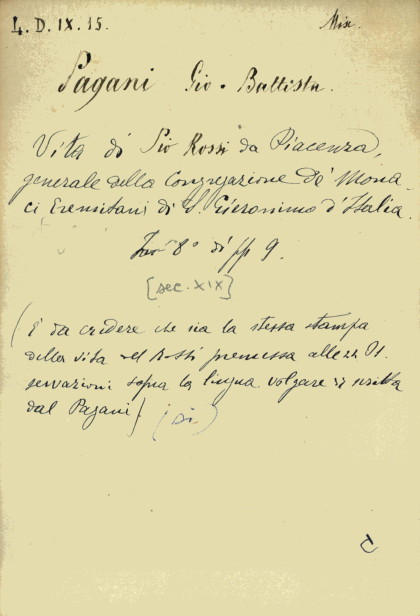 4. D. IX. 15. Misc.
Pagani Gio. Battista.
Vita di Pio Rossi da Piacenza,
generale della Congregazione de' Mona-
ci Eremitani di S. Gieronimo d'Italia.
8° di pp 9.
[sec. XIX]
(È da credere che sia la stessa stampa
della vita del Rossi premessa alle Os
servazioni sopra la lingua volgare scritta
dal Pagani) (si)